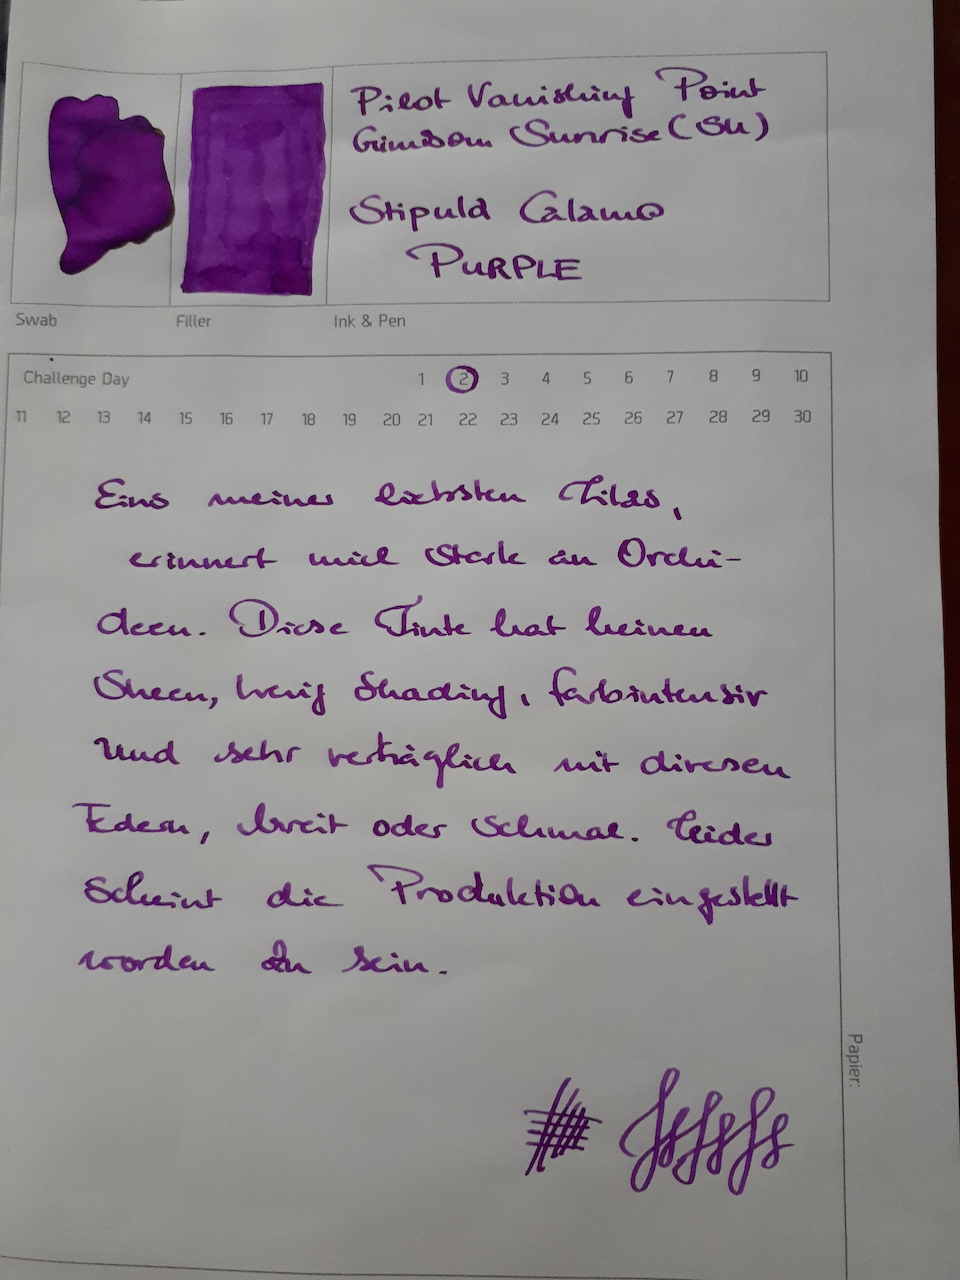 Pilot Vanishing Point
Crimson Sunrise (SU)
Stipula Calamo
PURPLE
Swab Filler Ink & Pen
Challenge Day 1 2 3 4 5 6 7 8 9 10
11 12 13 14 15 16 17 18 19 20 21 22 23 24 25 26 27 28 29 30
Eins meiner liebsten Lilas,
erinnert mich stark an Orchi-
deen. Diese Tinte hat keinen
Sheen, wenig Shading, farbintensiv
und sehr verträglich mit diversen
Federn, breit oder schmal. Leider
scheint die Produktion eingestellt
worden zu sein.
Papier: